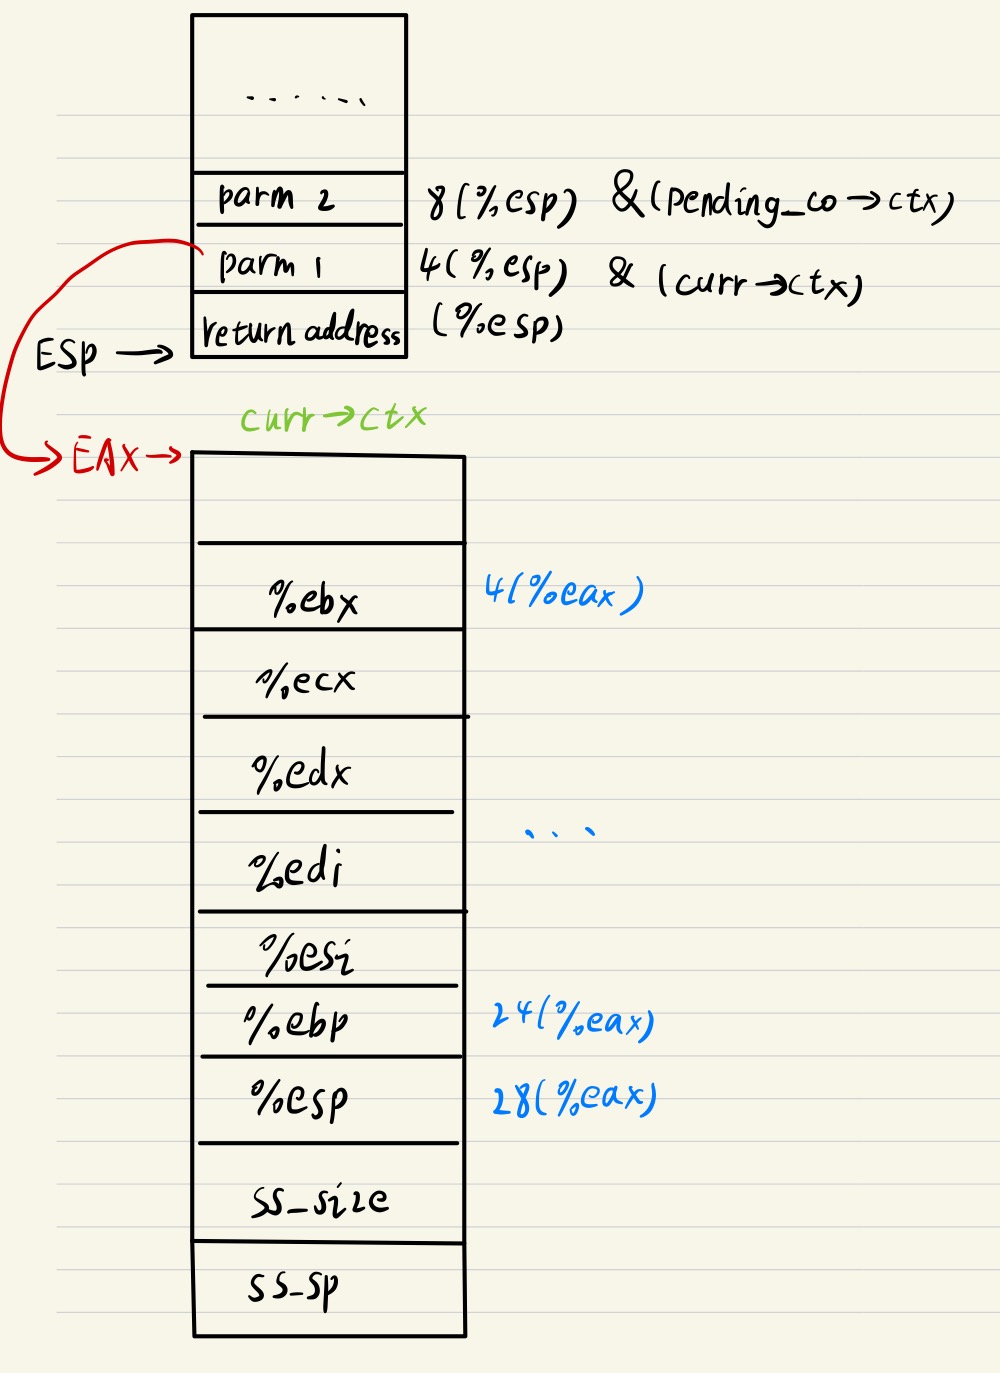 ......
parm 2 8(%esp) &(pending_co→ctx)
parm 1 4(%esp) &(curr→ctx)
return address (%esp)
ESP →
curr→ctx
EAX→
%ebx 4(%eax)
%ecx
%edx
...
%edi
%esi
%ebp 24(%eax)
%esp 28(%eax)
ss_size
ss_sp